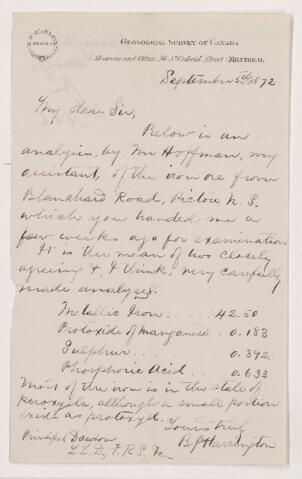 GEOLOGICAL SURVEY OF CANADA
(Museum and Office, 76 St Gabriel Street) MONTREAL
September 5th 1872
My dear Sir,
Below is an
analysis, by Mr Hoffman, my
assistant, of the iron ore from
Blanchard Road, Pictou N. S.
which you handed me a
few weeks ago for examination
It is the mean of two closely
agreeing &, I think, very carefully
made analyses.
Metallic Iron ..... 42.50
Protoxide of manganese .. 0.183
Sulphur ......... 0.392
Phosphoric Acid .. 0.633
Most of the iron is in the state of
peroxide, although a small portion
exists as protoxyd.
Yours truly
B J Harrington
Principal Dawson
L L. D, F. R. S, &c.